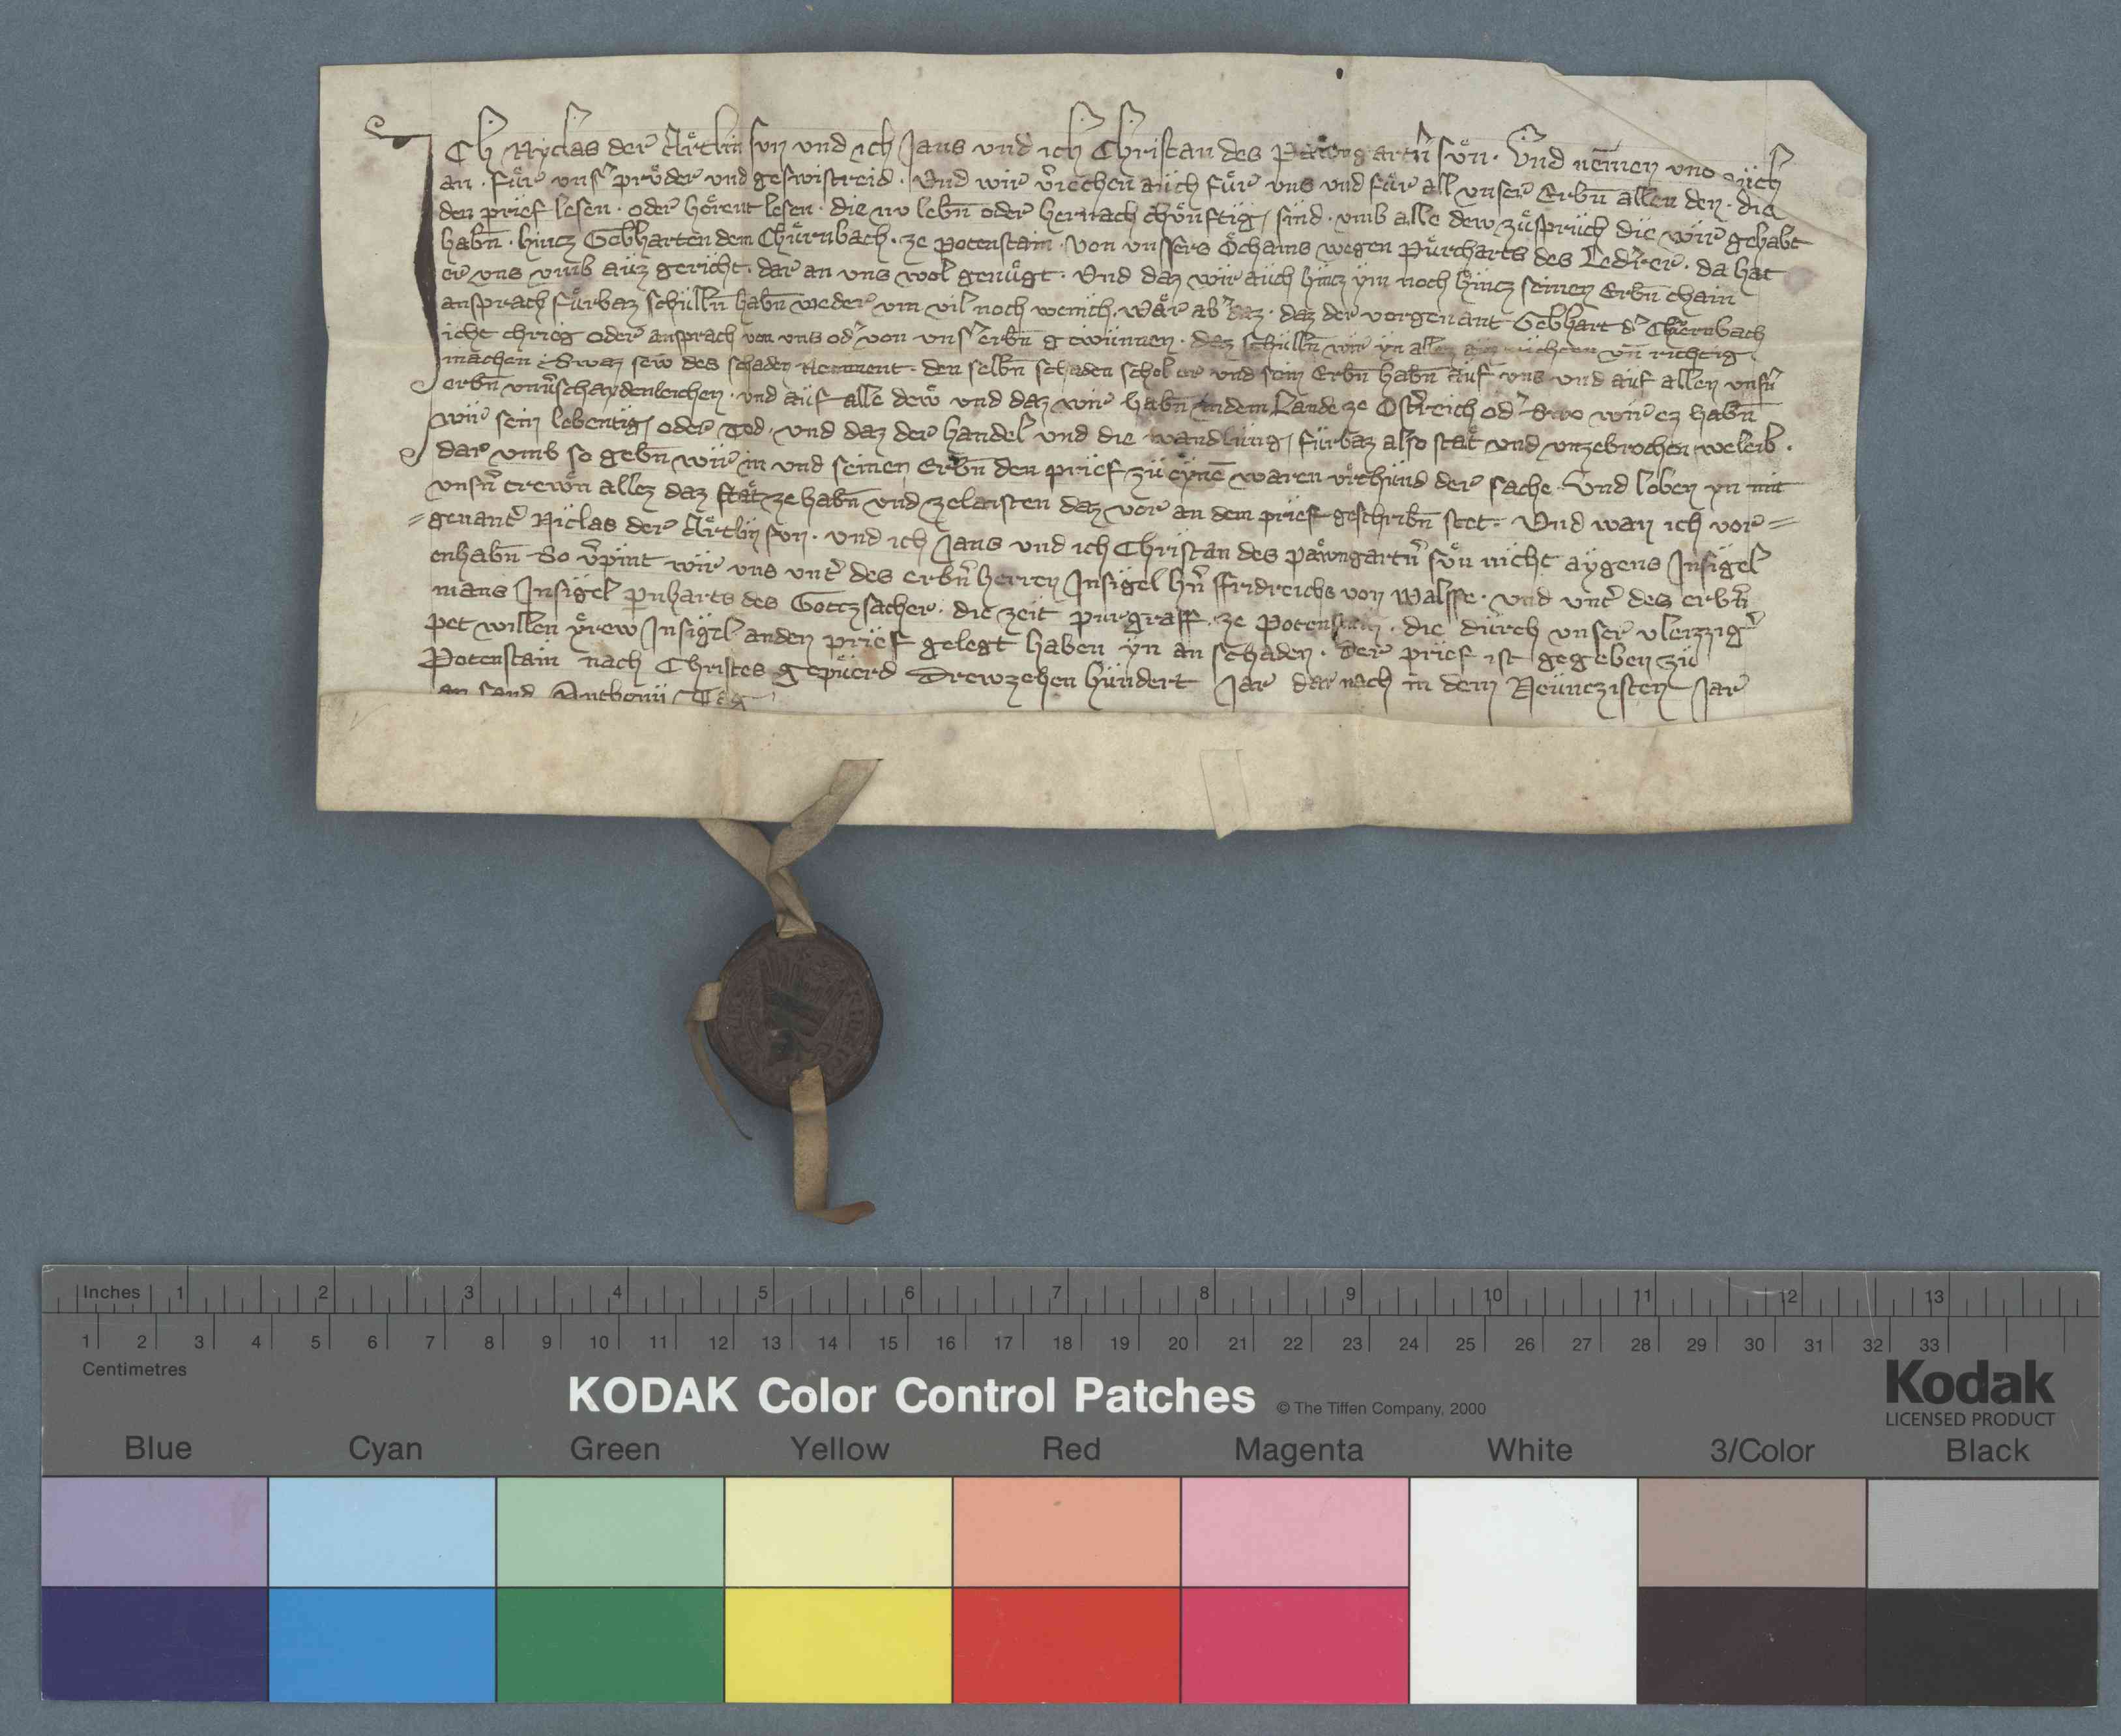 ICh Nyclas der Ärtlin sun vnd ich Jans vnd ich Christan des Pawngartn̄ sün · Vnd nemen vns auch
an · für vnsͬ prüder vnd geswistreid · Vnd wir vͬiechen auch für vns vnd für all vnser Erbn̄ allen den · die
den prief lesen · oder hörent lesen · die nv lebn̄ oder hernach chönftig sind · vmb alle dew züsprüch die wir gehabt
habn̄ · hincz Gebharten dem Chürnbach · ze Potenstain · Von vnssers Öchams wegen Pürcharts des Ledrͬer · da hat
er vns vmb auz gericht · dar an vns wol genügt · Vnd daz wir auch hincz ym noch hincz seinen Erbn̄ chain
ansprach fürbaz schülln̄ habn̄ weder vm vil noch wenich · wär abͬ daz · daz der vorgenant Gebhart dͬ Chürnbach
icht chrieg oder ansprach von vns odͬ von vnsͬ erbn̄ gewünnen · daz schülln̄ wir yn allez vn̄ richtig
machen · Swaz sew des schaden Nemment · den selbn̄ schaden schol er vnd sein Erbn̄ habn̄ auf vns vnd auf allen vnsn̄
erbn̄ vnuͬschaydenleichen · vnd auf alle dew vnd daz wir habn̄ in dem Lande ze Ostͬreich odͬ Swo wir ez habn̄
wir sein lebentig oder Tod · vnd daz der handel vnd die wandlung fürbaz also stät vnd vnzebrochen weleib ·
dar vmb so gebn̄ wir in vnd seinen Erbn̄ den prief zü eynē waren vrchünd der sache · Vnd loben yn mit
vnsn̄ trewn allez daz stät ze habn̄ vnd ze laisten daz vor an dem prief geschribn̄ stet · Vnd wan ich vor=
=genantͬ Niclas der Ärtlin sun · vnd ich Jans vnd ich Christan des pawngartn̄ sün nicht aygens Insigel
enhabn̄ So vͬpint wir vns vntͬ des erbn̄ herren Insigel hn̄ ffridreichs von Walsse · vnd vntͬ des erbn̄
mans Insigel pͬnharts des Gotczsacher · die zeit purgraff · ze Potenstain · die durch vnser vleizzigͬ
pet willen yrew Insigel an den prief gelegt haben yn an schaden · Der prief ist gegeben zü
Potenstain nach Christes gepuerd Drewzehen hundert Jar dar nach in dem Neünczisten Jar
an sand Anthonii Tag
Inches 1 2 3 4 5 6 7 8 9 10 11 12 13
1 2 3 4 5 6 7 8 9 10 11 12 13 14 15 16 17 18 19 20 21 22 23 24 25 26 27 28 29 30 31 32 33
Centimetres
KODAK Color Control Patches © The Tiffen Company, 2000
Kodak
LICENSED PRODUCT
Blue Cyan Green Yellow Red Magenta White 3/Color Black